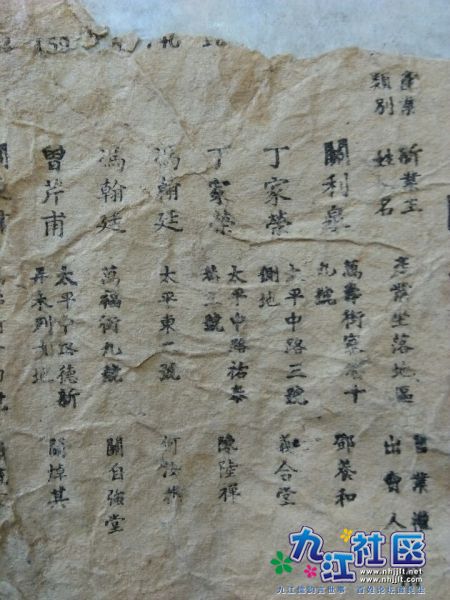 產業類別
新業主姓名
產業坐落地區
舊業權出會人
關利泉
萬壽街 十九號
鄧養和
丁家榮
太平中路三號側地
義合堂
丁家榮
太平中路祐泰 號
陳陸禪
馮翰廷
太平東一號
何
馮翰廷
萬福街九號
關自強堂
曾芹甫
太平中路德新昇未列 地
關焯其
九江社区
www.nhjjlt.net
www.nhjjlt.com